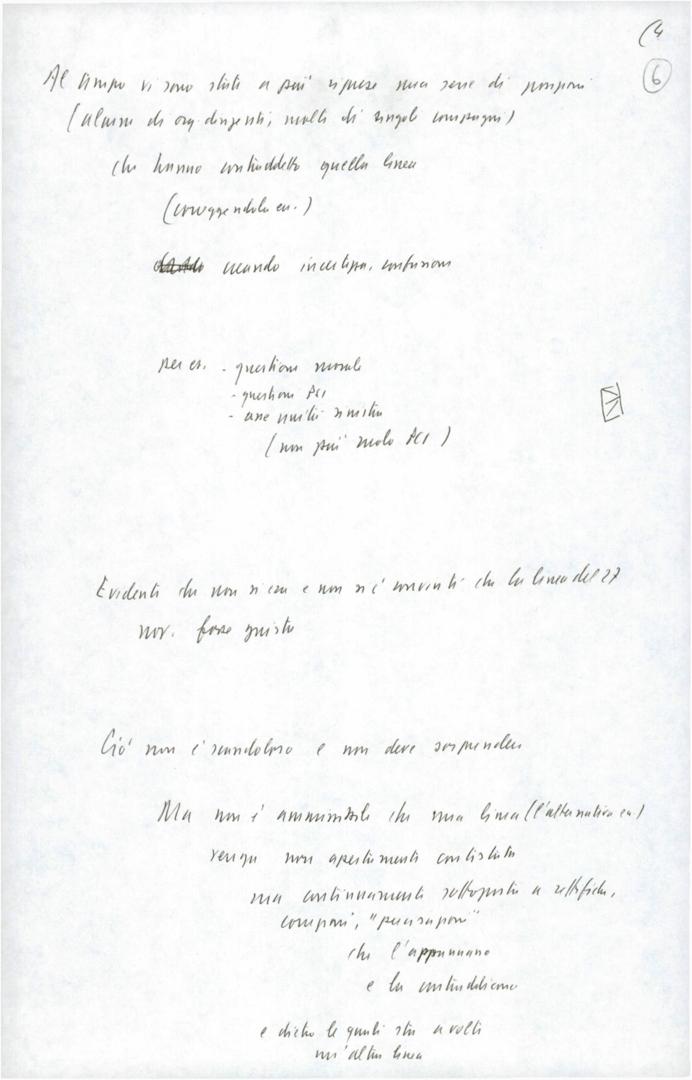 (4
6
Al tempo vi sono stati a più riprese una serie di
(alcune di org. dirigenti, molte di singoli compagni)
che hanno contraddetto quella linea
(correggendola ecc.)
creando incertezza, confusione
per es. - questione morale
- questione PCI
- asse unità sinistra
(non più ruolo PCI)
Evidente che non si era e non si è convinti che la linea del 27
nov. fosse giusta
Ciò non è scandaloso e non deve sorprendere
Ma non è ammissibile che una linea (l'alternativa ecc.)
venga non apertamente contestata
ma continuamente sottoposta a rettifiche,
correzioni, "precisazioni"
che l'appannano
e la contraddicono
e dietro le quali sta a volte
un'altra linea